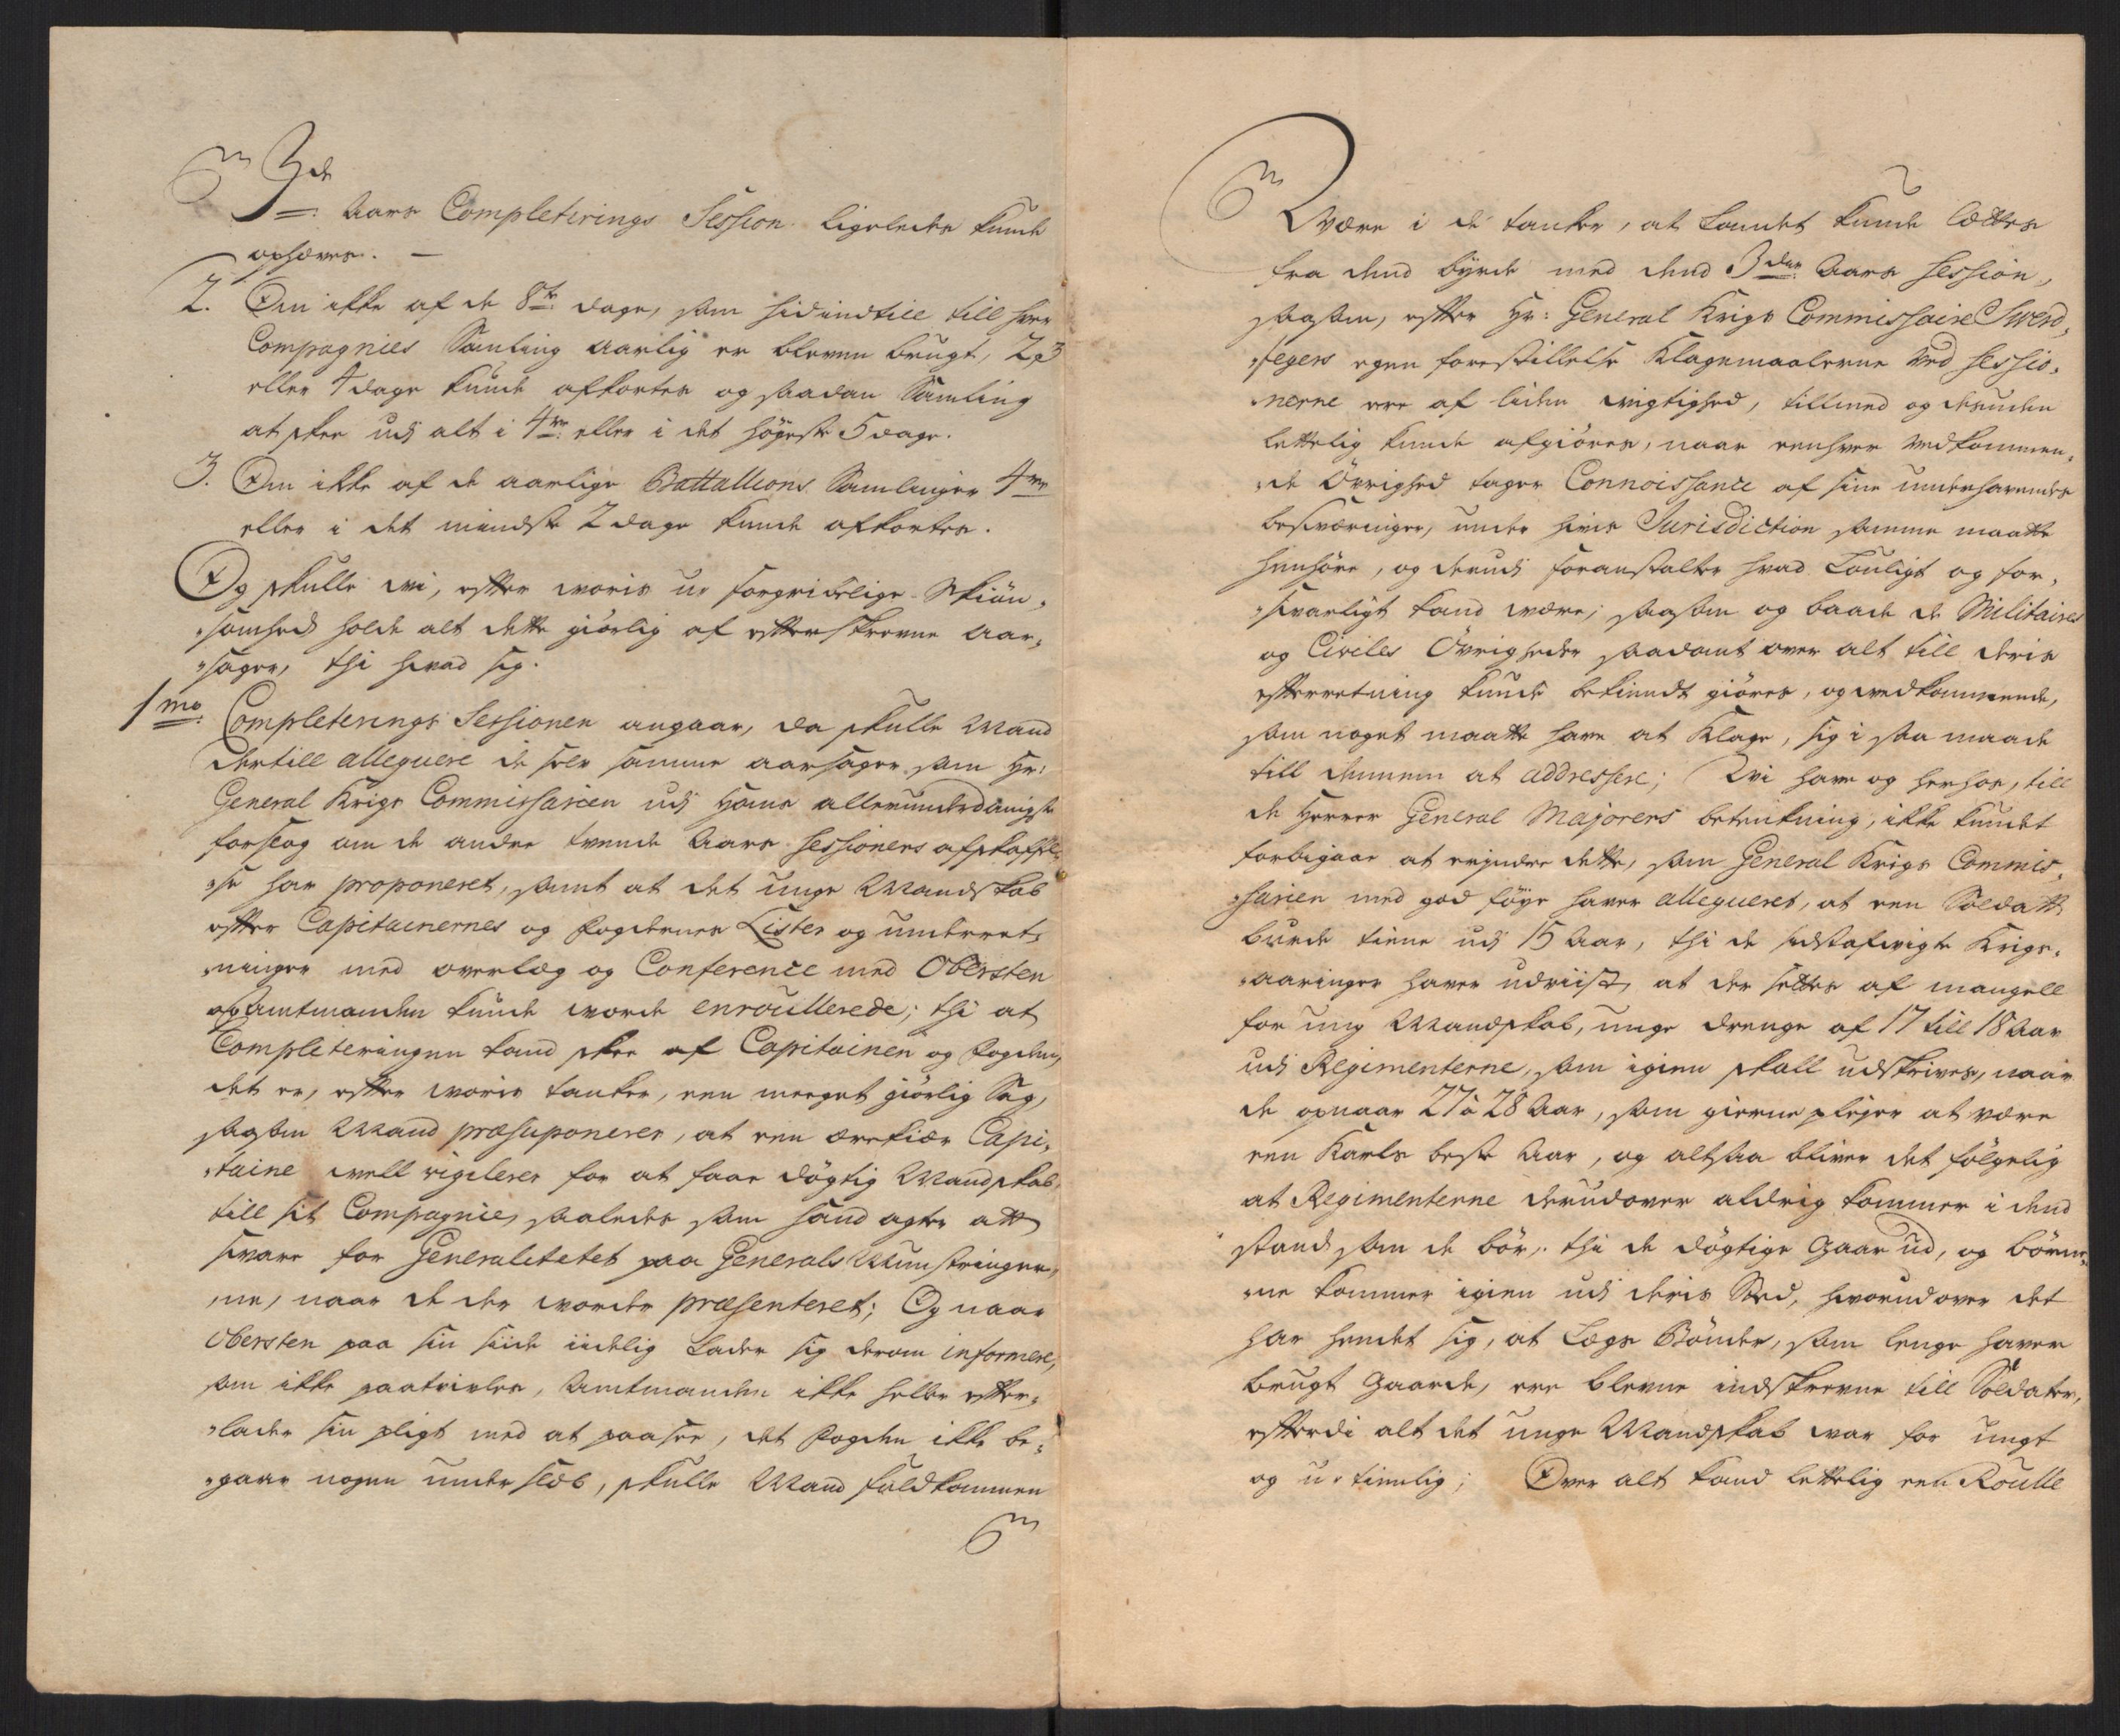 3de
Aars Completerings Session ligeledes kunde
ophæves. —
2. Om ikke af de 8te dage, som hidindtill till hver
Compagnies Samling aarlig er bleven brugt, 2, 3
eller 4 dage kunde afkortes og saadan Samling
at skee udj alt i 4re eller i det höyeste 5 dage.
3. Om ikke af de aarlige Battallions Samlinger 4re
eller i det mindste 2 dage kunde afkortes.
Og skulle wi, efter woris u-forgribelige Skiön,
„somhed holde alt dette giörlig af efterskrevne Aar,
„sager, thi hvad sig.
1mo Completerings Sessionen angaar, da skulle Mand
dertill alleguere de selv samme aarsager som Hr:
General Krigs Commissarien udj Hans allerunderdanigste
forslag om de andre tvende Aars Sessioners afskaffel,
„se har proponeret, samt at det unge Mandskab
efter Capitainernes og Fogdernes Lister og underret,
„ninger med overlæg og Conference med Obersten
og Amtmanden kunde worde enroullerede; thi at
Completeringen kand skee af Capitainen og Fogden,
det er, efter woris tanker, een meeget giörlig Sag,
saasom Mand præsuponerer, at een ærekiær Capi,
„taine well vigilerer for at faae dögtig Mandskab
till sit Compagnie, saaledes som hand agter att
svare for Generalitetet paa Generals Munstringer,
„ne, naar de der worder præsenteret; Og naar
Obersten paa sin siide iidelig Lader sig derom informere,
som ikke paatvivles, Amtmanden ikke heller efter,
„lader sin pligt med at paasee, det Fogden ikke be,
„gaar nogen underslæb, skulle Mand fuldkommen
Være i de tanker, at Landet kunde lættes
fra dend byrde med dend 3die Aars Session,
saasom, efter Hr: General Krigs Commissaire Swerd,
„fegers egen forestillelse Klagemaalerne ved Sessio,
„nerne ere af liden wigtighed, tillmed og desuden
lettelig kunde afgiöres, naar eenhver vedkommen,
„de Övrighed tager Connoissance af sine underhavendes
besværinger, under hvis Jurisdiction samme maatte
henhöre, og derudj foranstalter hvad Louligt og for,
„svarligt kand være; saasom og baade de Militaires
og Civiles Övrigheder saadant over alt till deris
efterretning kunde bekiendt giöres, og vedkommende,
som noget maatte have at Klage, sig i saa maade
till dennem at addressere; Wi have og herhos, till
de Herrer General Majorers betenkning, ikke kundet
forbigaae at erindre dette, som General Krigs Commis,
„sarien med god föye haver allegueret, at een Soldatt
burde tiene udj 15 Aar, thi de sidstafvigte Krigs,
„aaringer haver udviist, at der settes af mangell
for ung Mandskab, unge drenge af 17 till 18 Aar
udj Regimenterne, som igien skall udskrives, naar
de opnaar 27 à 28 Aar, som gierne pleyer at være
een Karls beste Aar, og altsaa bliver det fölgelig
at Regimenterne derudover aldrig kommer i dend
stand som de bör, thi de dögtige gaar ud, og börne,
„ne kommer igien udj deris Sted, hvorudover det
har hendet sig, at Lægs Bönder, som lenge haver
brugt Gaarde, ere blevne indskrevne till Soldater,
efterdi alt det unge Mandskab war for ungt
og u-tienlig; Over alt kand lettelig een Roulle